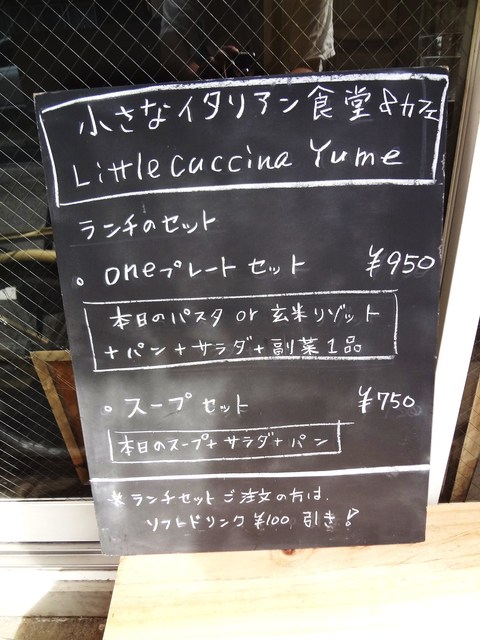 小さなイタリアン食堂&カフェ
Little cuccina Yume
ランチのセット
oneプレートセット ¥950
本日のパスタ or 玄米リゾット
+パン+サラダ+副菜1品
スープセット ¥750
本日のスープ+サラダ+パン
※ランチセットご注文の方は、
ソフトドリンク¥100引き!